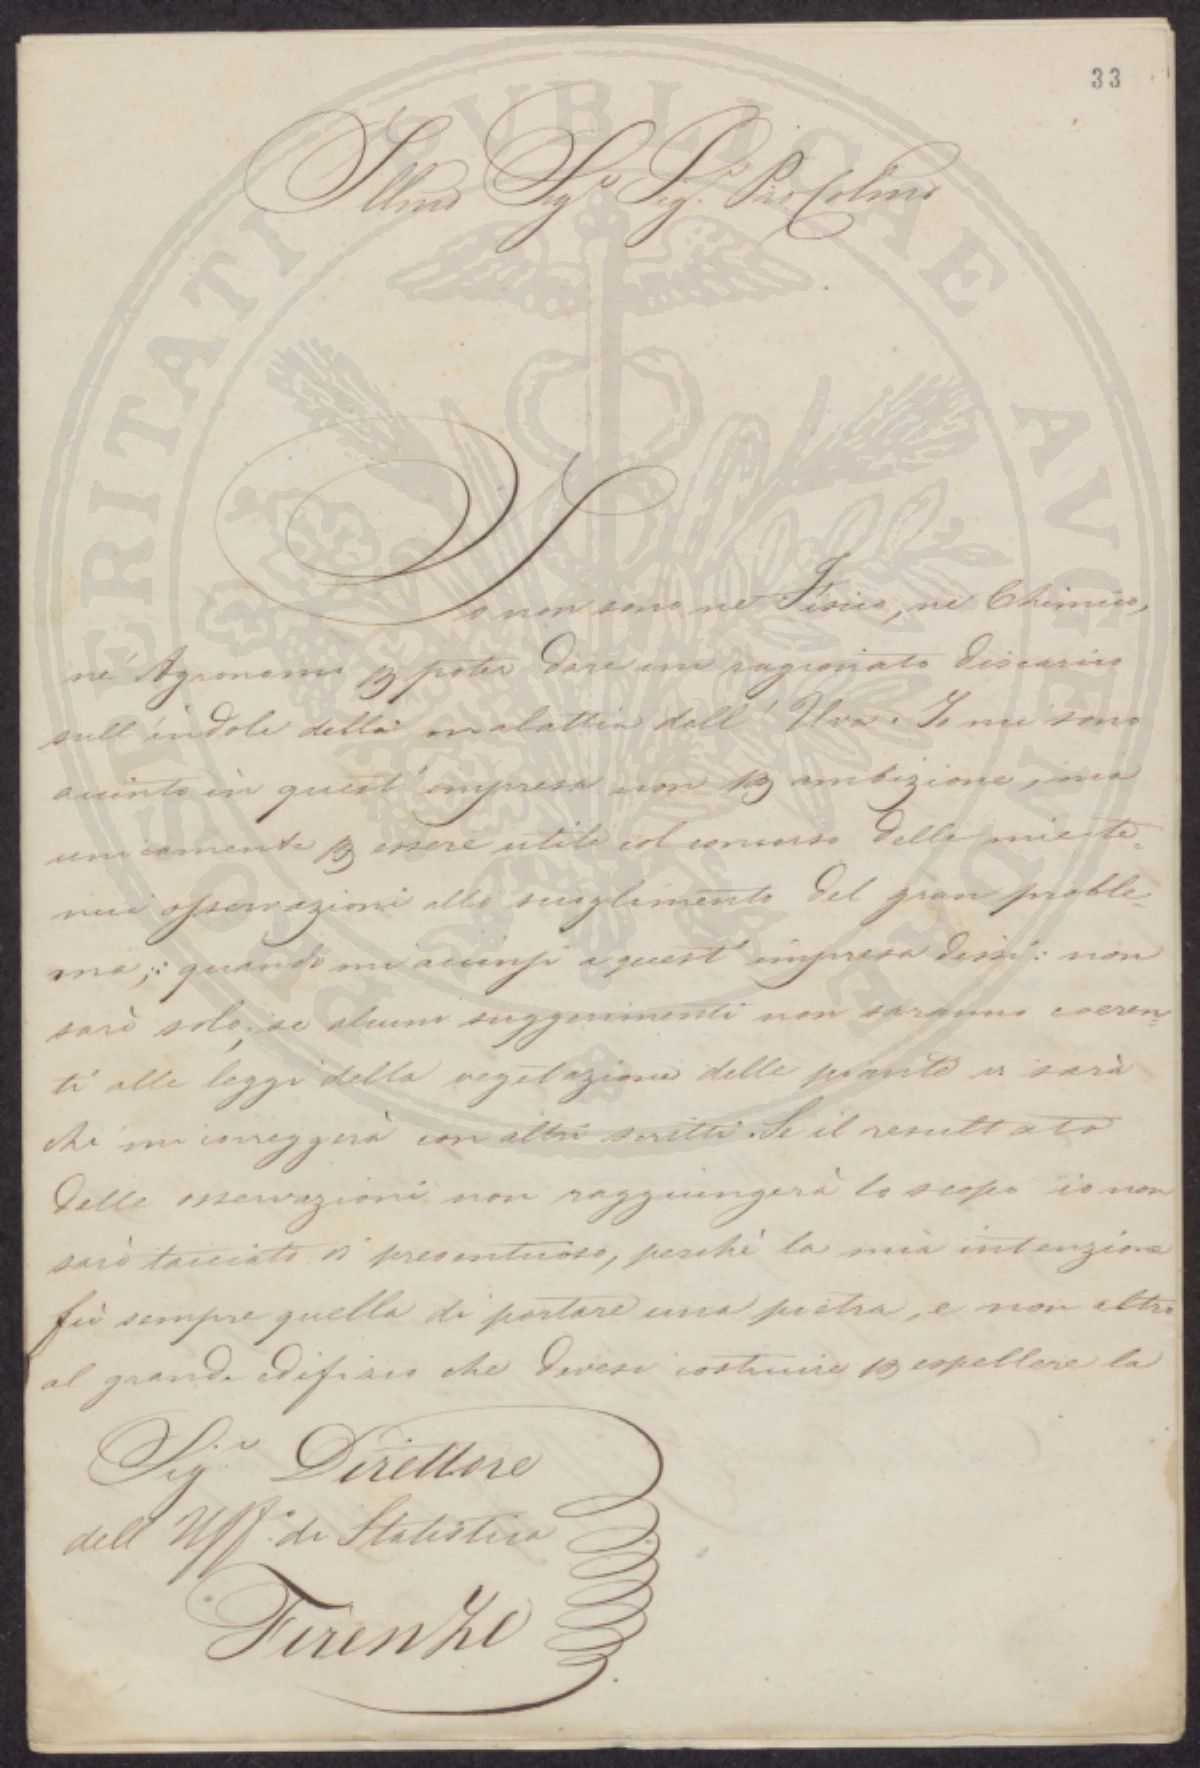 33
Illmo Sigr Sigr Pro Colmo
Io non sono ne Fisico, ne Chimico,
ne Agronomo p poter dare un ragionato discarico
sull'indole della malattia dell'Uva. Io mi sono
accinto in quest'impresa non p ambizione, ma
unicamente p essere utile col concorso delle mie te=
nui osservazioni allo scioglimento del gran proble=
ma; quando mi accinsi a quest'impresa dissi: non
sarò solo; se alcuni suggerimenti non saranno coeren=
ti alle leggi della vegetazione delle piante vi sarà
chi mi correggerà con altri scritti. Se il resultato
delle osservazioni non raggiungerà lo scopo io non
sarò tacciato di presentuoso, perchè la mia intenzione
fù sempre quella di portare una pietra, e non altro
al grande edifizio che devesi costruire p espellere la
Sigr Direttore
dell Uffo di Statistica
Firenze
PROSPERITATI PVBLICAE AVGENDAE